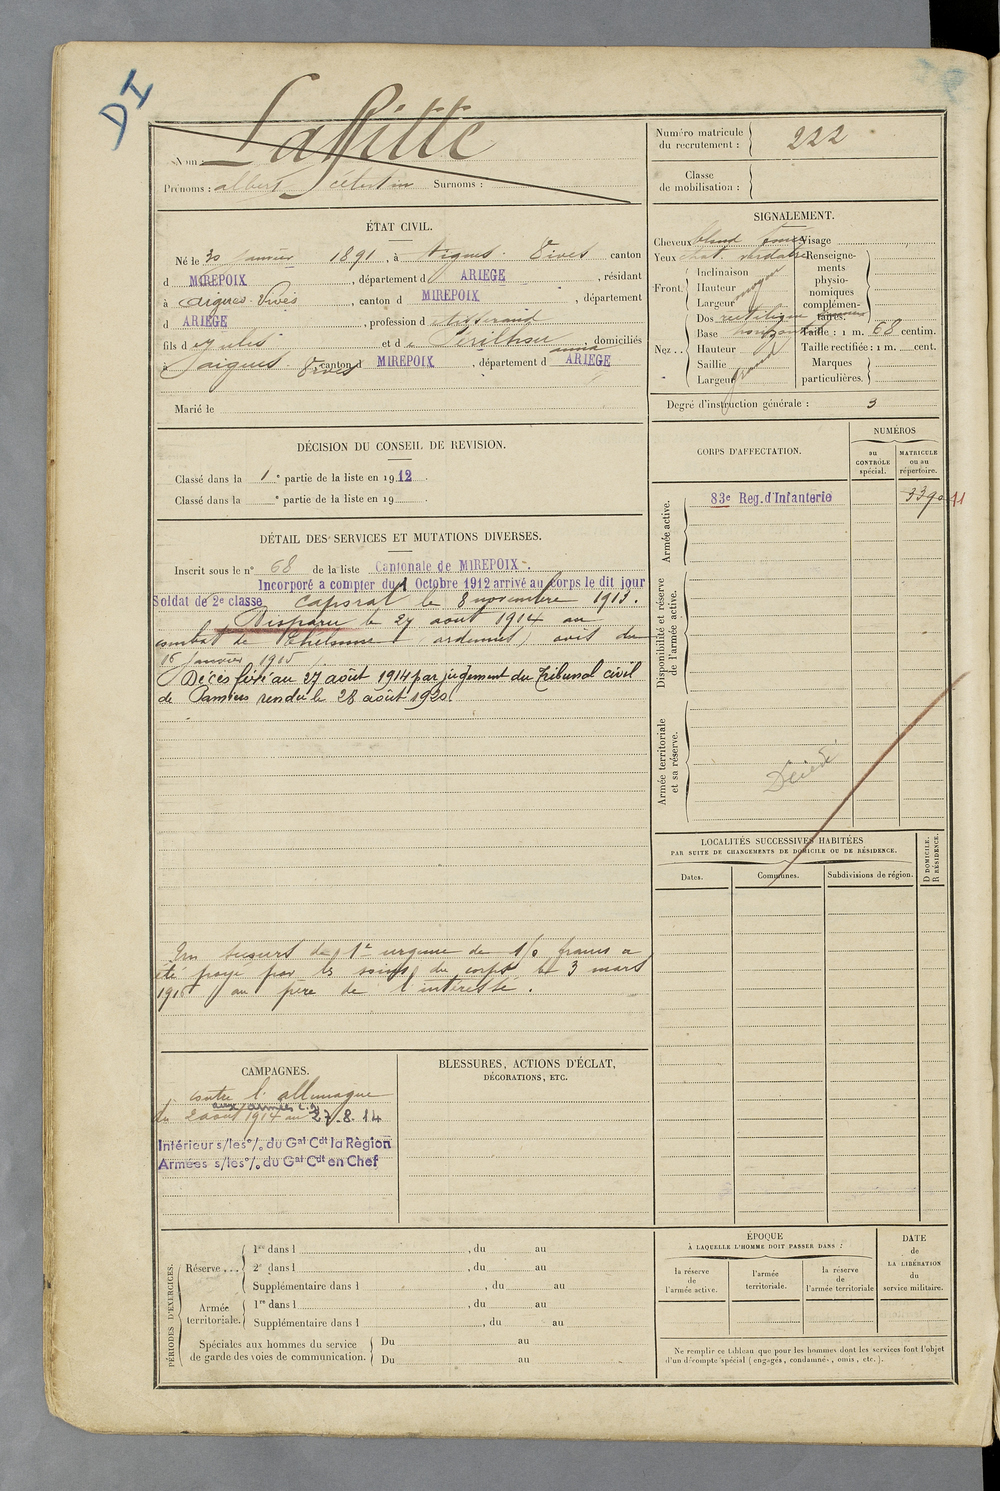 DI
Nom : Laffitte
Prénoms : albert célestin Surnoms :
Numéro matricule du recrutement : 222
Classe de mobilisation :
ÉTAT CIVIL.
Né le 30 janvier 1891, à Aigues-Vives canton
d MIREPOIX, département d ARIEGE, résidant
à Aigues-Vives, canton d MIREPOIX, département
d ARIEGE, profession de tisserand
fils d Jules et d Périlhou anna, domiciliés
à aigues-Vives canton d MIREPOIX, département d ARIEGE
Marié le
SIGNALEMENT.
Cheveux blond foncé Visage
Yeux chat. verdatre
Front. Inclinaison
Hauteur moyen
Largeur
Nez.. Dos rectiligne
Base horizontale
Hauteur
Saillie
Largeur
Renseignements physionomiques complémentaires.
Taille : 1 m. 68 centim.
Taille rectifiée : 1 m. cent.
Marques particulières.
Degré d'instruction générale : 3
DÉCISION DU CONSEIL DE REVISION.
Classé dans la 1e partie de la liste en 1912.
Classé dans la e partie de la liste en 19
CORPS D'AFFECTATION.
NUMÉROS
au CONTRÔLE spécial.
MATRICULE ou au répertoire.
Armée active.
83e Reg. d'Infanterie 3390
Disponibilité et réserve de l'armée active.
Armée territoriale et sa réserve.
Décédé
DÉTAIL DES SERVICES ET MUTATIONS DIVERSES.
Inscrit sous le n° 68 de la liste Cantonale de MIREPOIX.
Incorporé a compter du 1 Octobre 1912 arrivé au corps le dit jour
Soldat de 2e classe, caporal le 8 novembre 1913.
Disparu le 27 aout 1914 au
combat de Thelonne (ardennes) avis du
16 janvier 1915
Décès fixé au 27 août 1914 par jugement du Tribunal civil
de Pamiers rendu le 28 août 1920.
Un secours de 1re urgence de 150 francs a
été payé par les soins du corps le 3 mars
1916 au père de l'intéressé.
LOCALITÉS SUCCESSIVES HABITÉES
PAR SUITE DE CHANGEMENTS DE DOMICILE OU DE RÉSIDENCE.
Dates.
Communes.
Subdivisions de région.
D DOMICILE.
R RÉSIDENCE.
CAMPAGNES.
contre l'allemagne
aux armées
du 2 août 1914 au 27.8.14
Intérieur s/les o/. du Gal Cdt la Région
Armées s/les o/. du Gal Cdt en Chef
BLESSURES, ACTIONS D'ÉCLAT,
DÉCORATIONS, ETC.
PÉRIODES D'EXERCICES.
Réserve ... 1re dans l , du au
2e dans l , du au
Supplémentaire dans l , du au
Armée territoriale. 1re dans l , du au
Supplémentaire dans l , du au
Spéciales aux hommes du service Du au
de garde des voies de communication. Du au
ÉPOQUE
À LAQUELLE L'HOMME DOIT PASSER DANS :
la réserve de l'armée active.
l'armée territoriale.
la réserve de l'armée territoriale
DATE de LA LIBÉRATION du service militaire.
Ne remplir ce tableau que pour les hommes dont les services font l'objet
d'un décompte spécial (engagés, condamnés, omis, etc.).